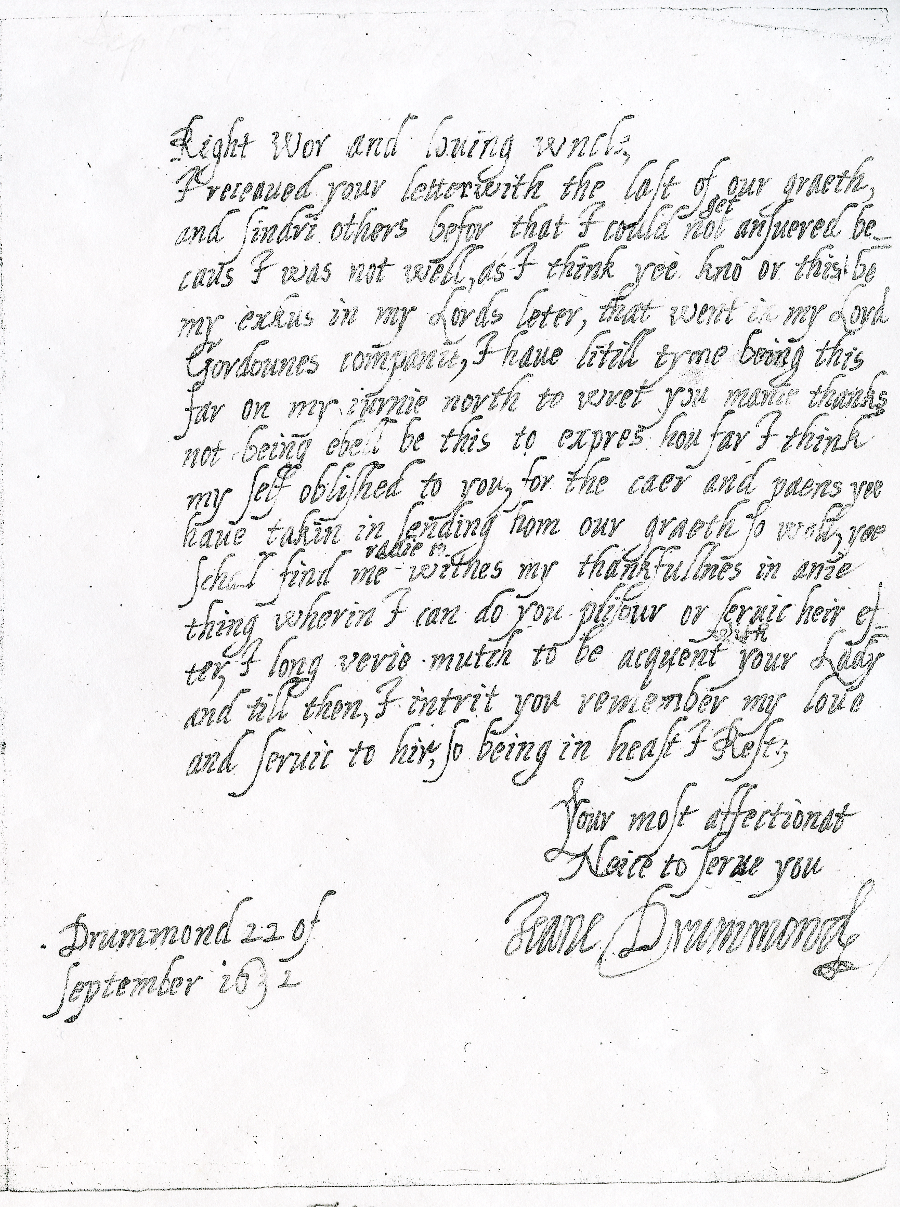 Right Wor and louing wncle,
I receaued your letter with the last of our graeth,
and sindri others befor that I could not get ansuered be_
caus I was not well, as I think yee kno or this, be
my exkus in my Lords leter, that went in my Lord
Gordounes companie, I haue litill tyme being this
far on my iurnie north to wret you manie thanks
not being ebell be this to expres hou far I think
my self oblished to you, for the caer and paens yee
haue takin in sending hom our graeth so well, yee
schal find me radie to witnes my thankfullnes in anie
thing wherin I can do you plisour or seruic heir ef_
ter, I long verie mutch to be acquent with your Lady
and till then, I intrit you remember my loue
and seruic to hir, so being in heast I Rest;
Your most affectionat
Neice to serue you
Jeane Drummond
Drummond 22 of
september 1632